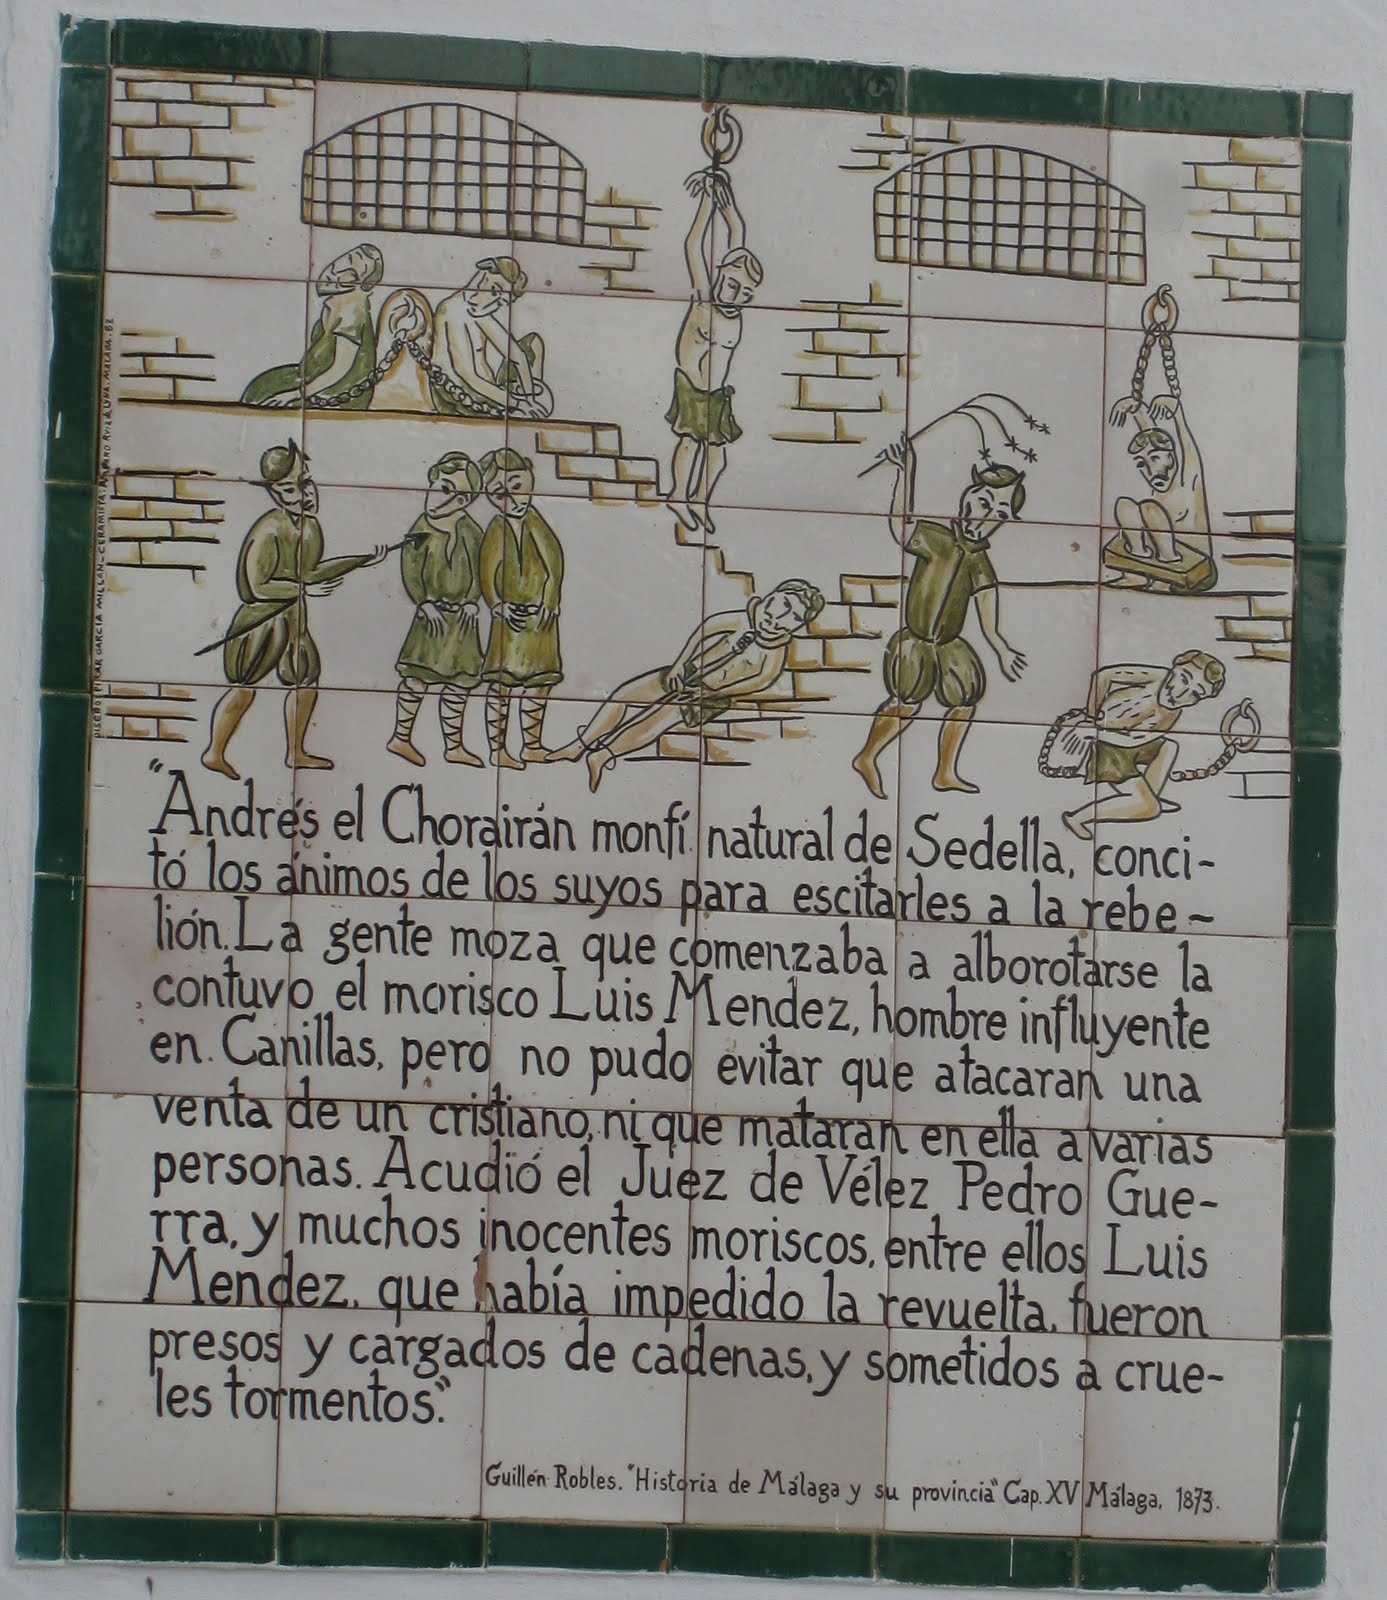 "Andrés el Chorairán monfí natural de Sedella, conci-
tó los ánimos de los suyos para escitarles a la rebe-
lión. La gente moza que comenzaba a alborotarse la
contuvo el morisco Luis Mendez, hombre influyente
en Canillas, pero no pudo evitar que atacaran una
venta de un cristiano, ni que mataran en ella a varias
personas. Acudió el Juez de Vélez Pedro Gue-
rra, y muchos inocentes moriscos, entre ellos Luis
Mendez, que había impedido la revuelta, fueron
presos y cargados de cadenas, y sometidos a crue-
les tormentos."
Guillén Robles. "Historia de Málaga y su provincia" Cap. XV Málaga, 1873.
DISEÑO PILAR GARCIA MILLAN - CERAMISTA: AMPARO RUIZ DE LUNA. MALAGA. 82